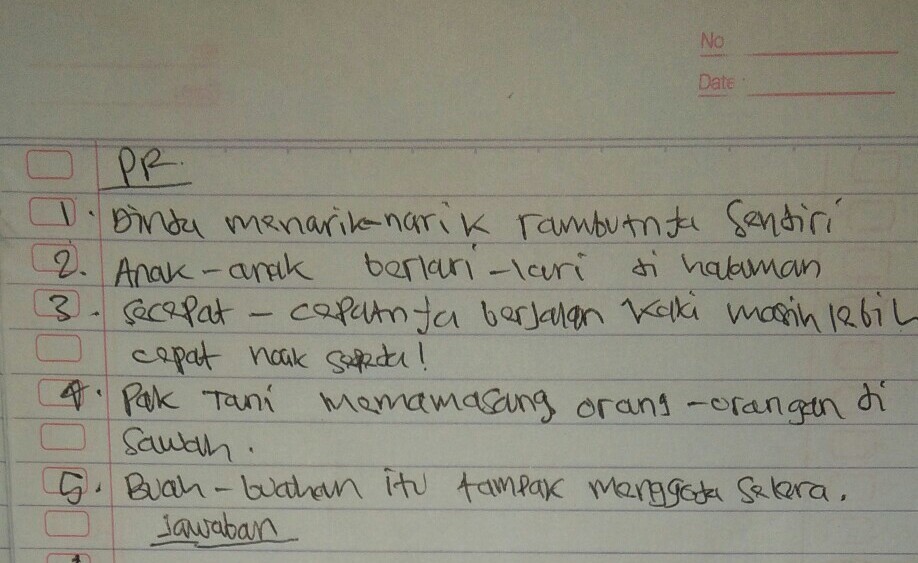 No
Date
PR.
1. Dinda menarik-narik rambutnya sendiri
2. Anak-anak berlari-lari di halaman
3. Secepat-cepatnya berjalan kaki masih lebih
cepat naik sepeda!
4. Pak Tani memamasang orang-orangan di
sawah.
5. Buah-buahan itu tampak menggoda selera.
Jawaban